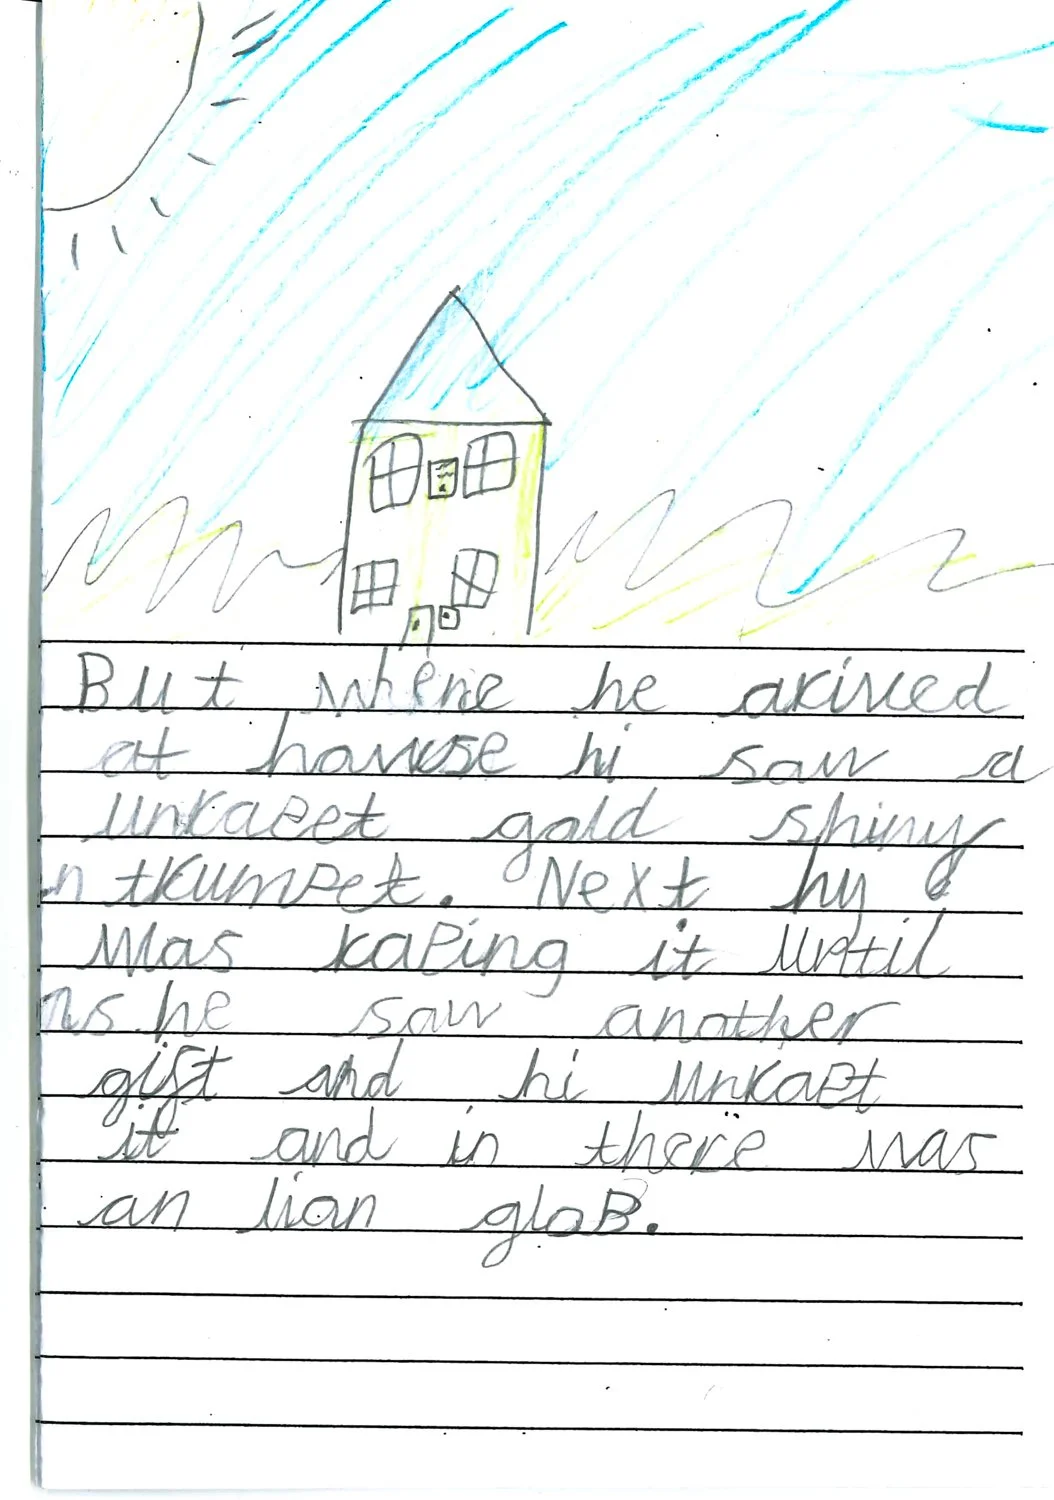 But where he arived
at howse hi saw a
unraPet gold shiny
n trumPet. Next hy
was kaPing it until
he saw another
gift and hi unraPt
it and in there was
an lion gloB.